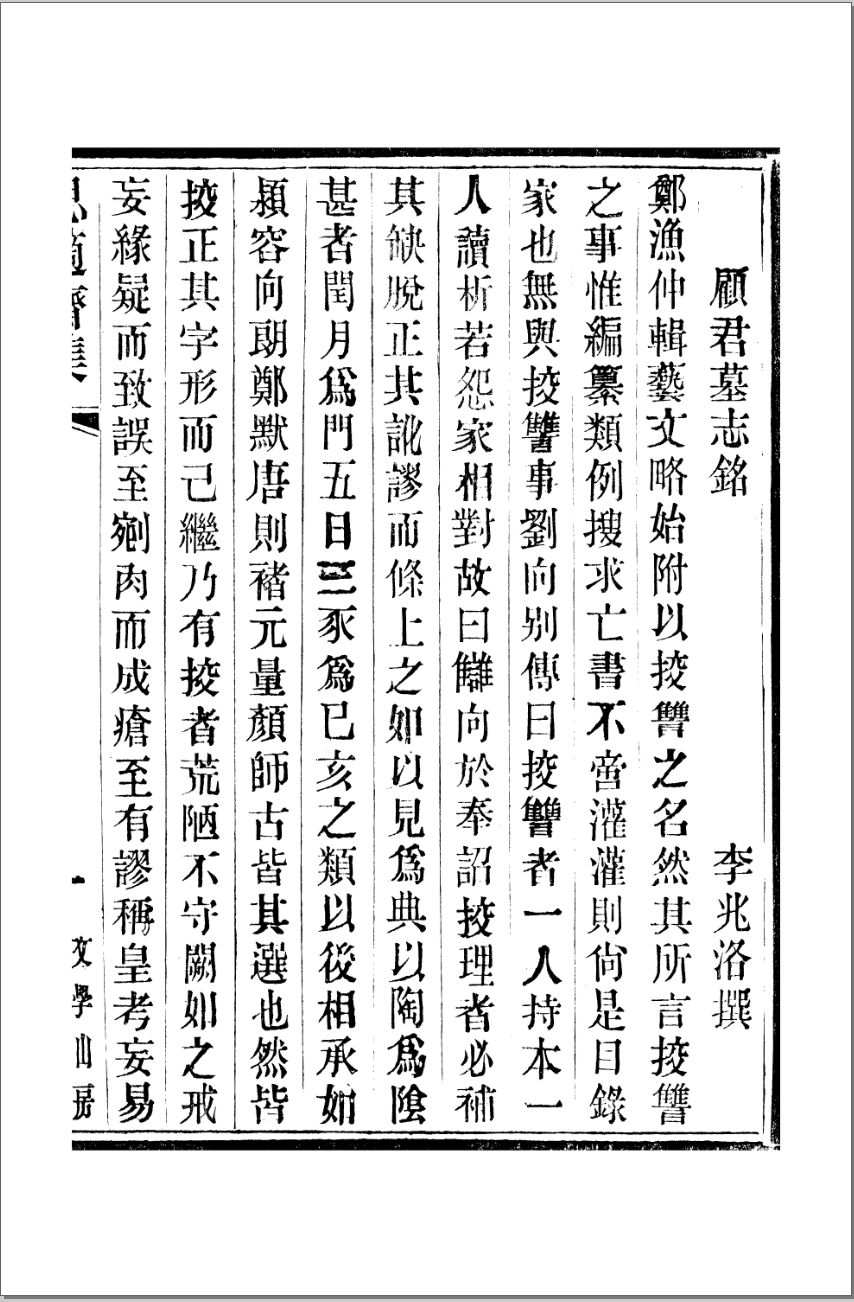 顧君墓志銘　李兆洛撰
鄭漁仲輯藝文略始附以挍讐之名然其所言挍讐
之事惟編纂類例搜求亡書不啻灌灌則尙是目錄
家也無與挍讐事劉向别傳曰挍讐者一人持本一
人讀析若怨家相對故曰讎向於奉詔挍理者必補
其缺脫正其訛謬而條上之如以見爲典以陶爲陰
甚者閏月爲門五日三豕爲巳亥之類以後相承如
潁容向朗鄭默唐則褚元量顏師古皆其選也然皆
挍正其字形而已繼乃有挍者荒陋不守闕如之戒
妄緣疑而致誤至剜肉而成瘡至有謬稱皇考妄易
思適齋集　一　文學山房